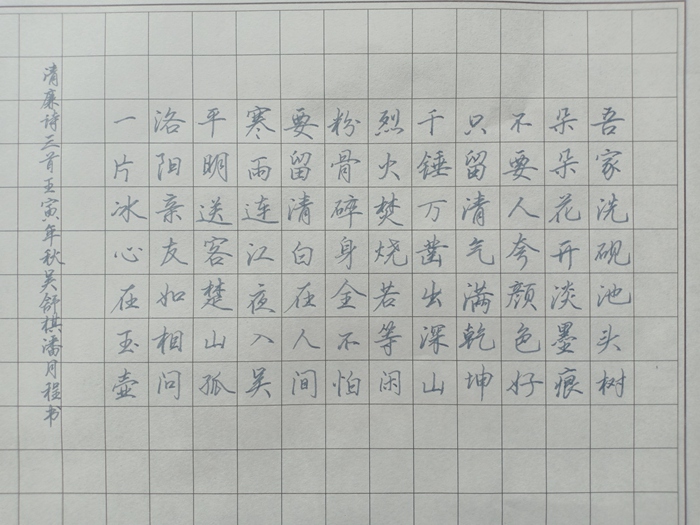 吾家洗砚池头树
朵朵花开淡墨痕
不要人夸颜色好
只留清气满乾坤
千锤万凿出深山
烈火焚烧若等闲
粉骨碎身全不怕
要留清白在人间
寒雨连江夜入吴
平明送客楚山孤
洛阳亲友如相问
一片冰心在玉壶
清廉诗三首王寅年秋吴舒棋潘月程书